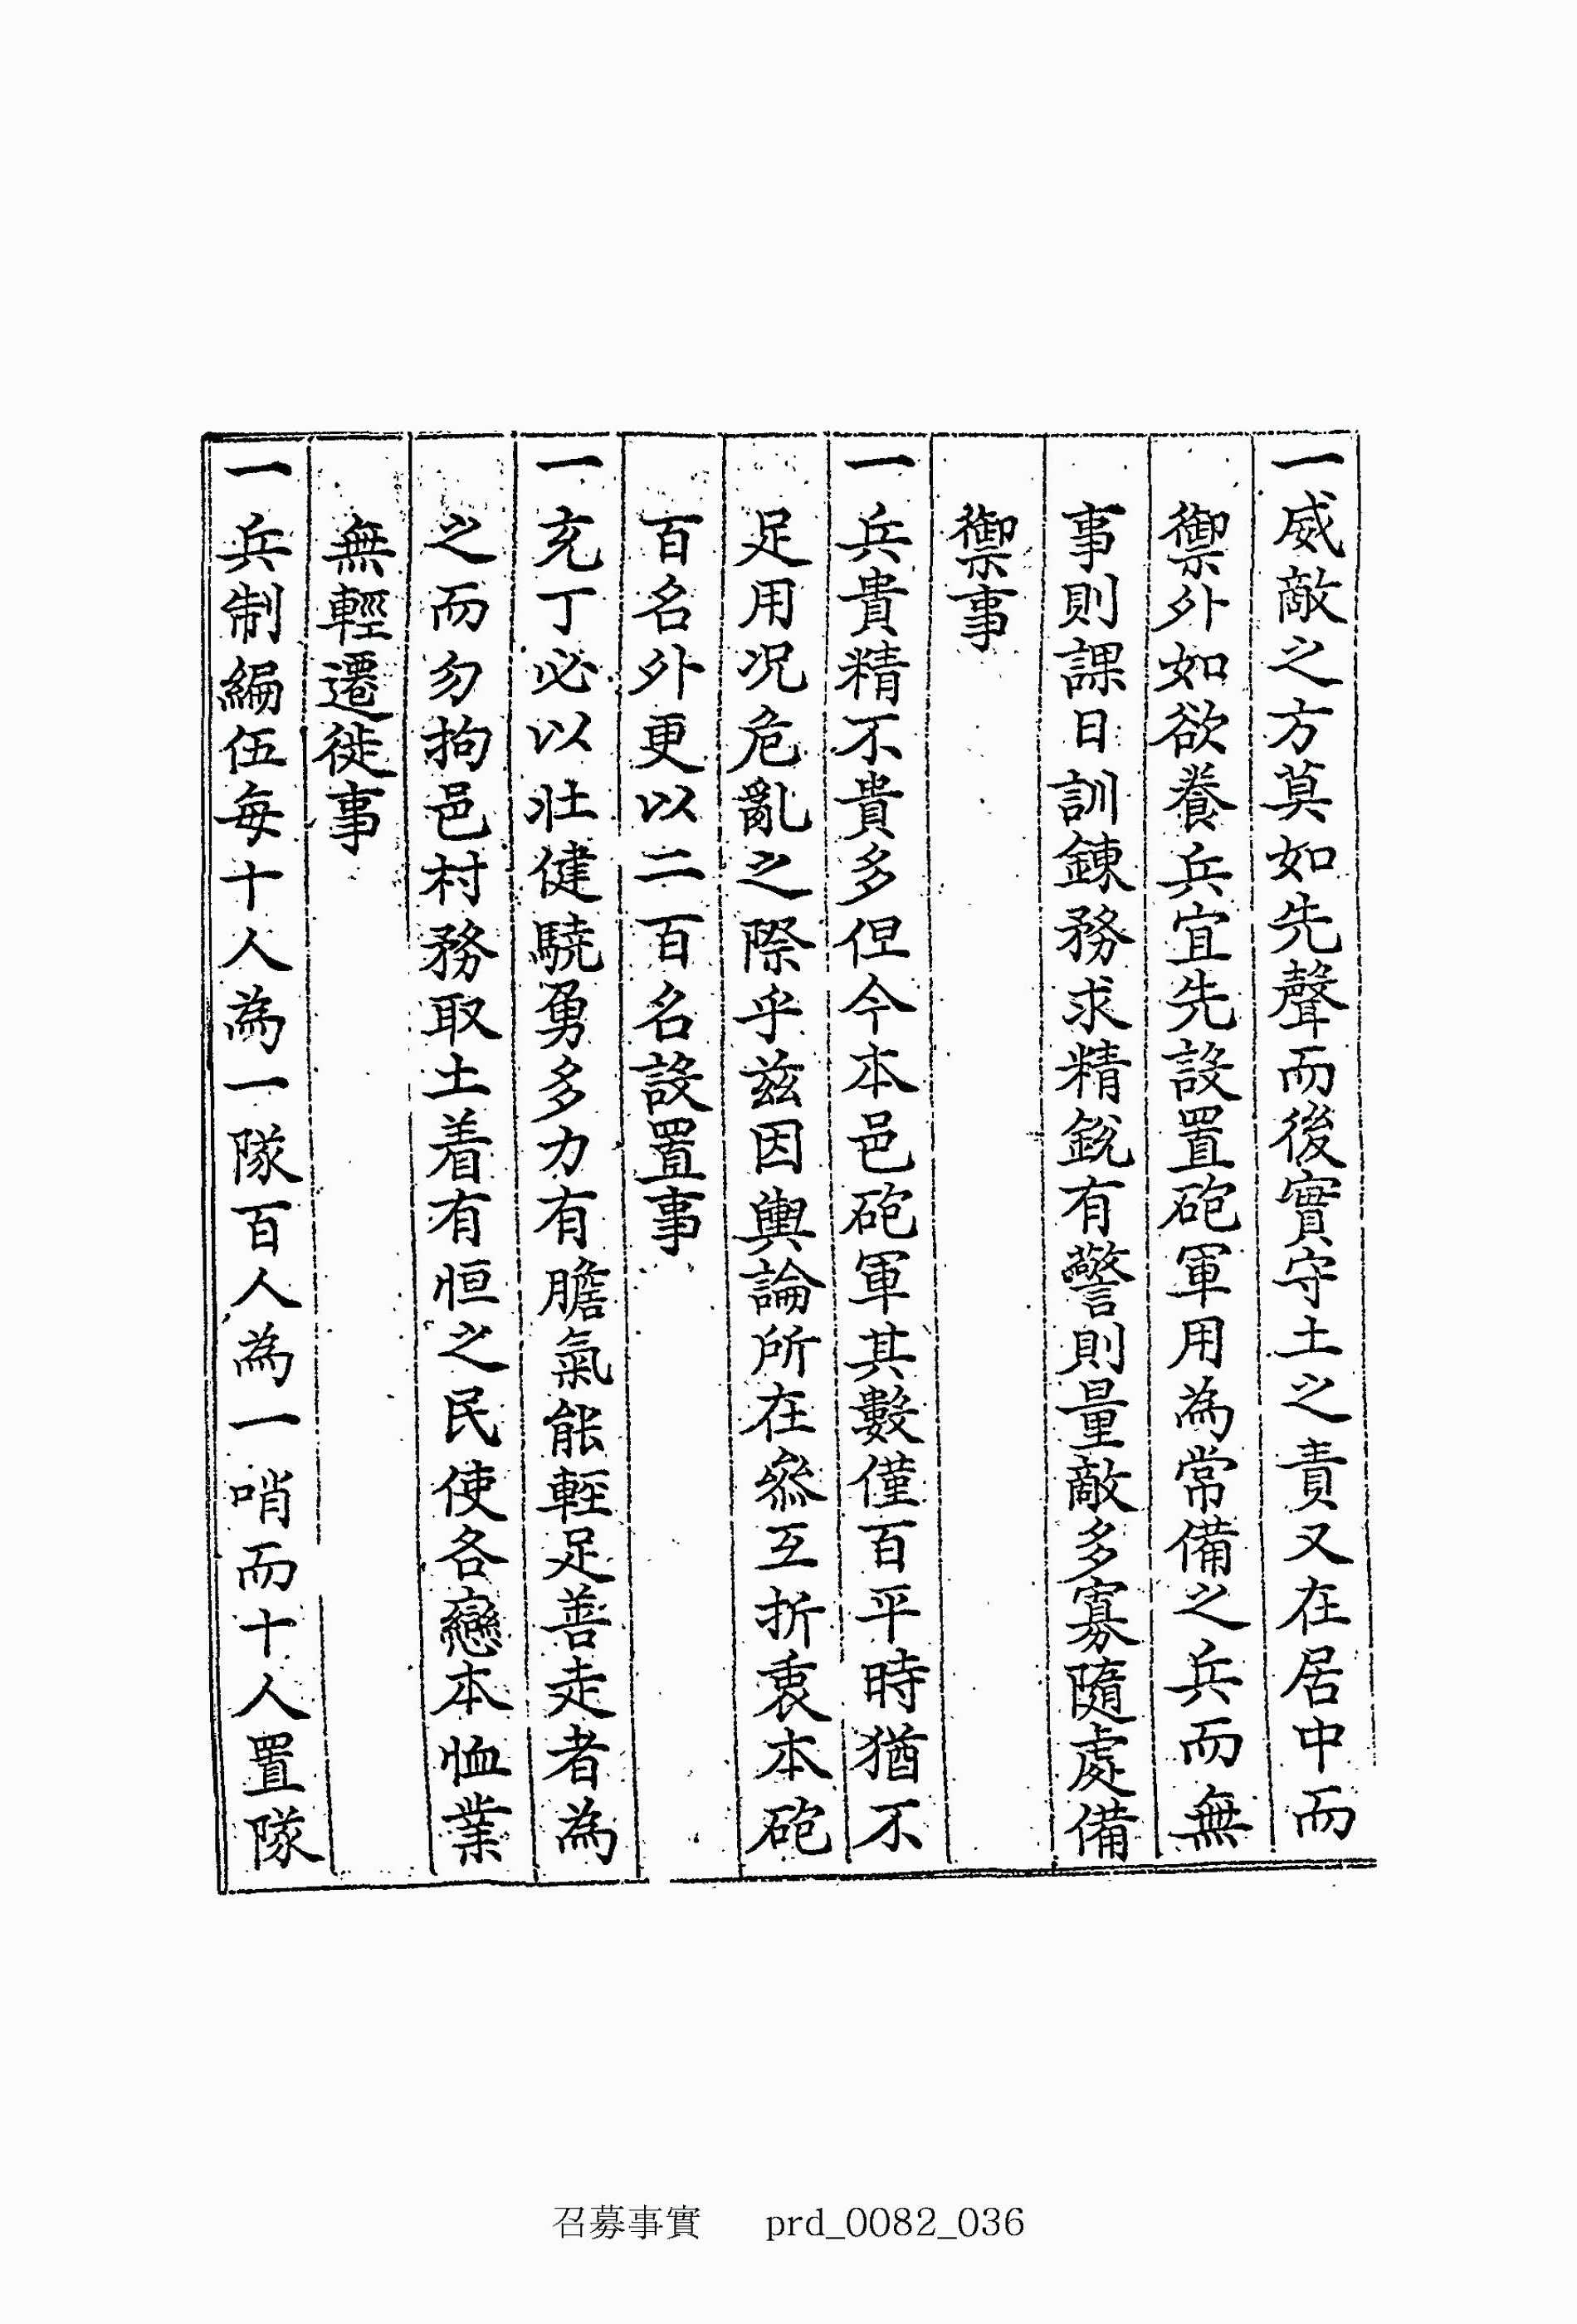 一威敵之方莫如先聲而後實守土之責又在居中而
禦外如欲養兵宜先設置砲軍用為常備之兵而無
事則課日訓鍊務求精銳有警則量敵多寡隨處備
禦事
一兵貴精不貴多但今本邑砲軍其數僅百平時猶不
足用况危亂之際乎玆因輿論所在叅互折衷本砲
百名外更以二百名設置事
一充丁必以壯健驍勇多力有膽氣能輕足善走者為
之而勿拘邑村務取土着有恒之民使各戀本恤業
無輕遷徙事
一兵制編伍每十人為一隊百人為一哨而十人置隊
召募事實 prd_0082_036